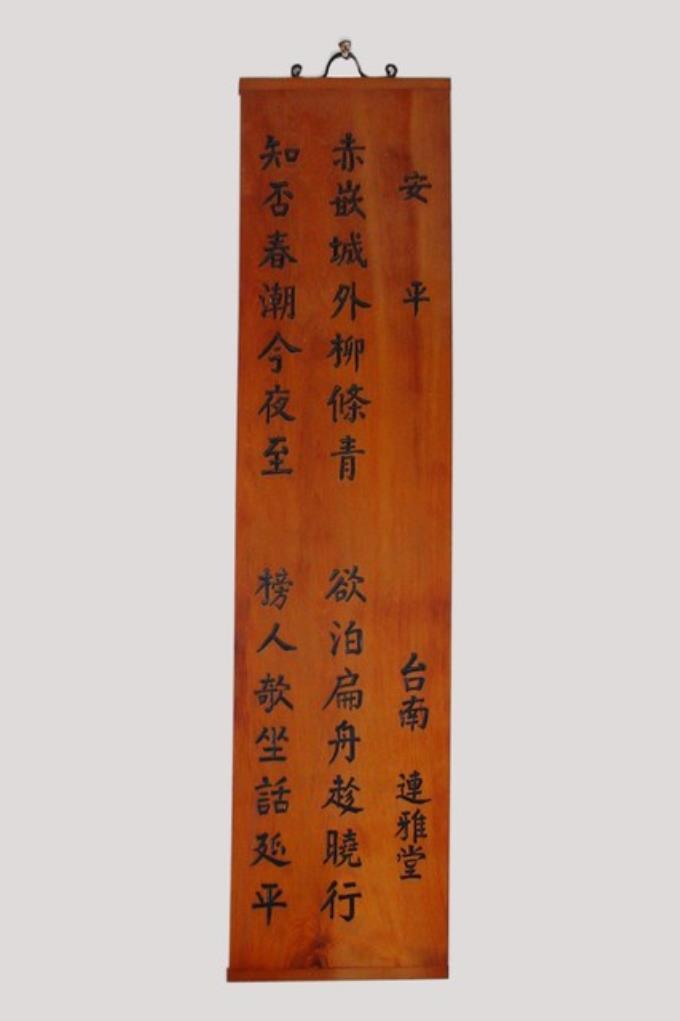 安平 台南 連雅堂
赤嵌城外柳條青 欲泊扁舟趁曉行
知否春潮今夜至 榜人欹坐話延平